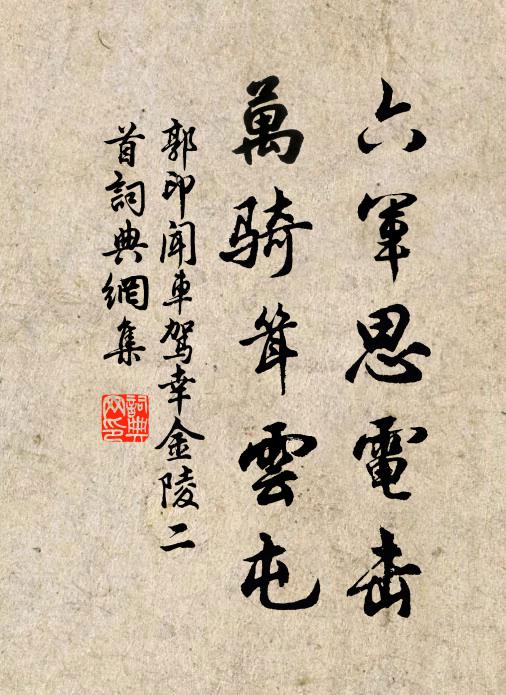 六軍思電击
萬騎耸雲屯
郭印闻車駕幸金陵二
首詞典網集
詞典
网印